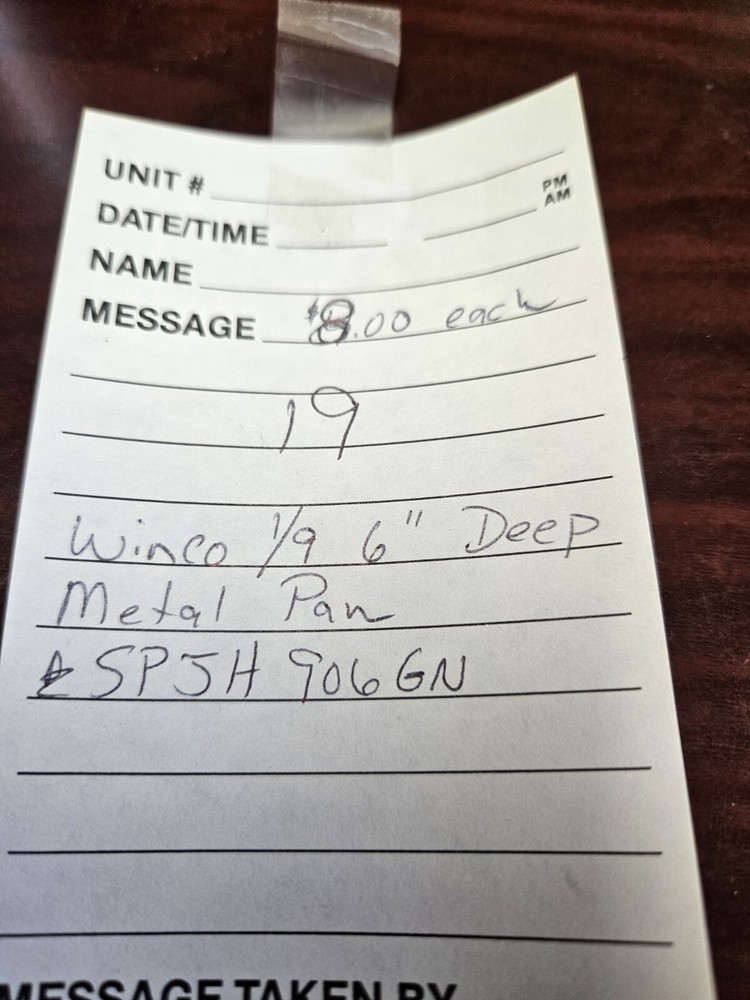 UNIT #
PM
DATE/TIME AM
NAME
MESSAGE $8.00 each
19
Winco 1/9 6" Deep
Metal Pan
SPJH 906GN
MESSAGE TAKEN BY